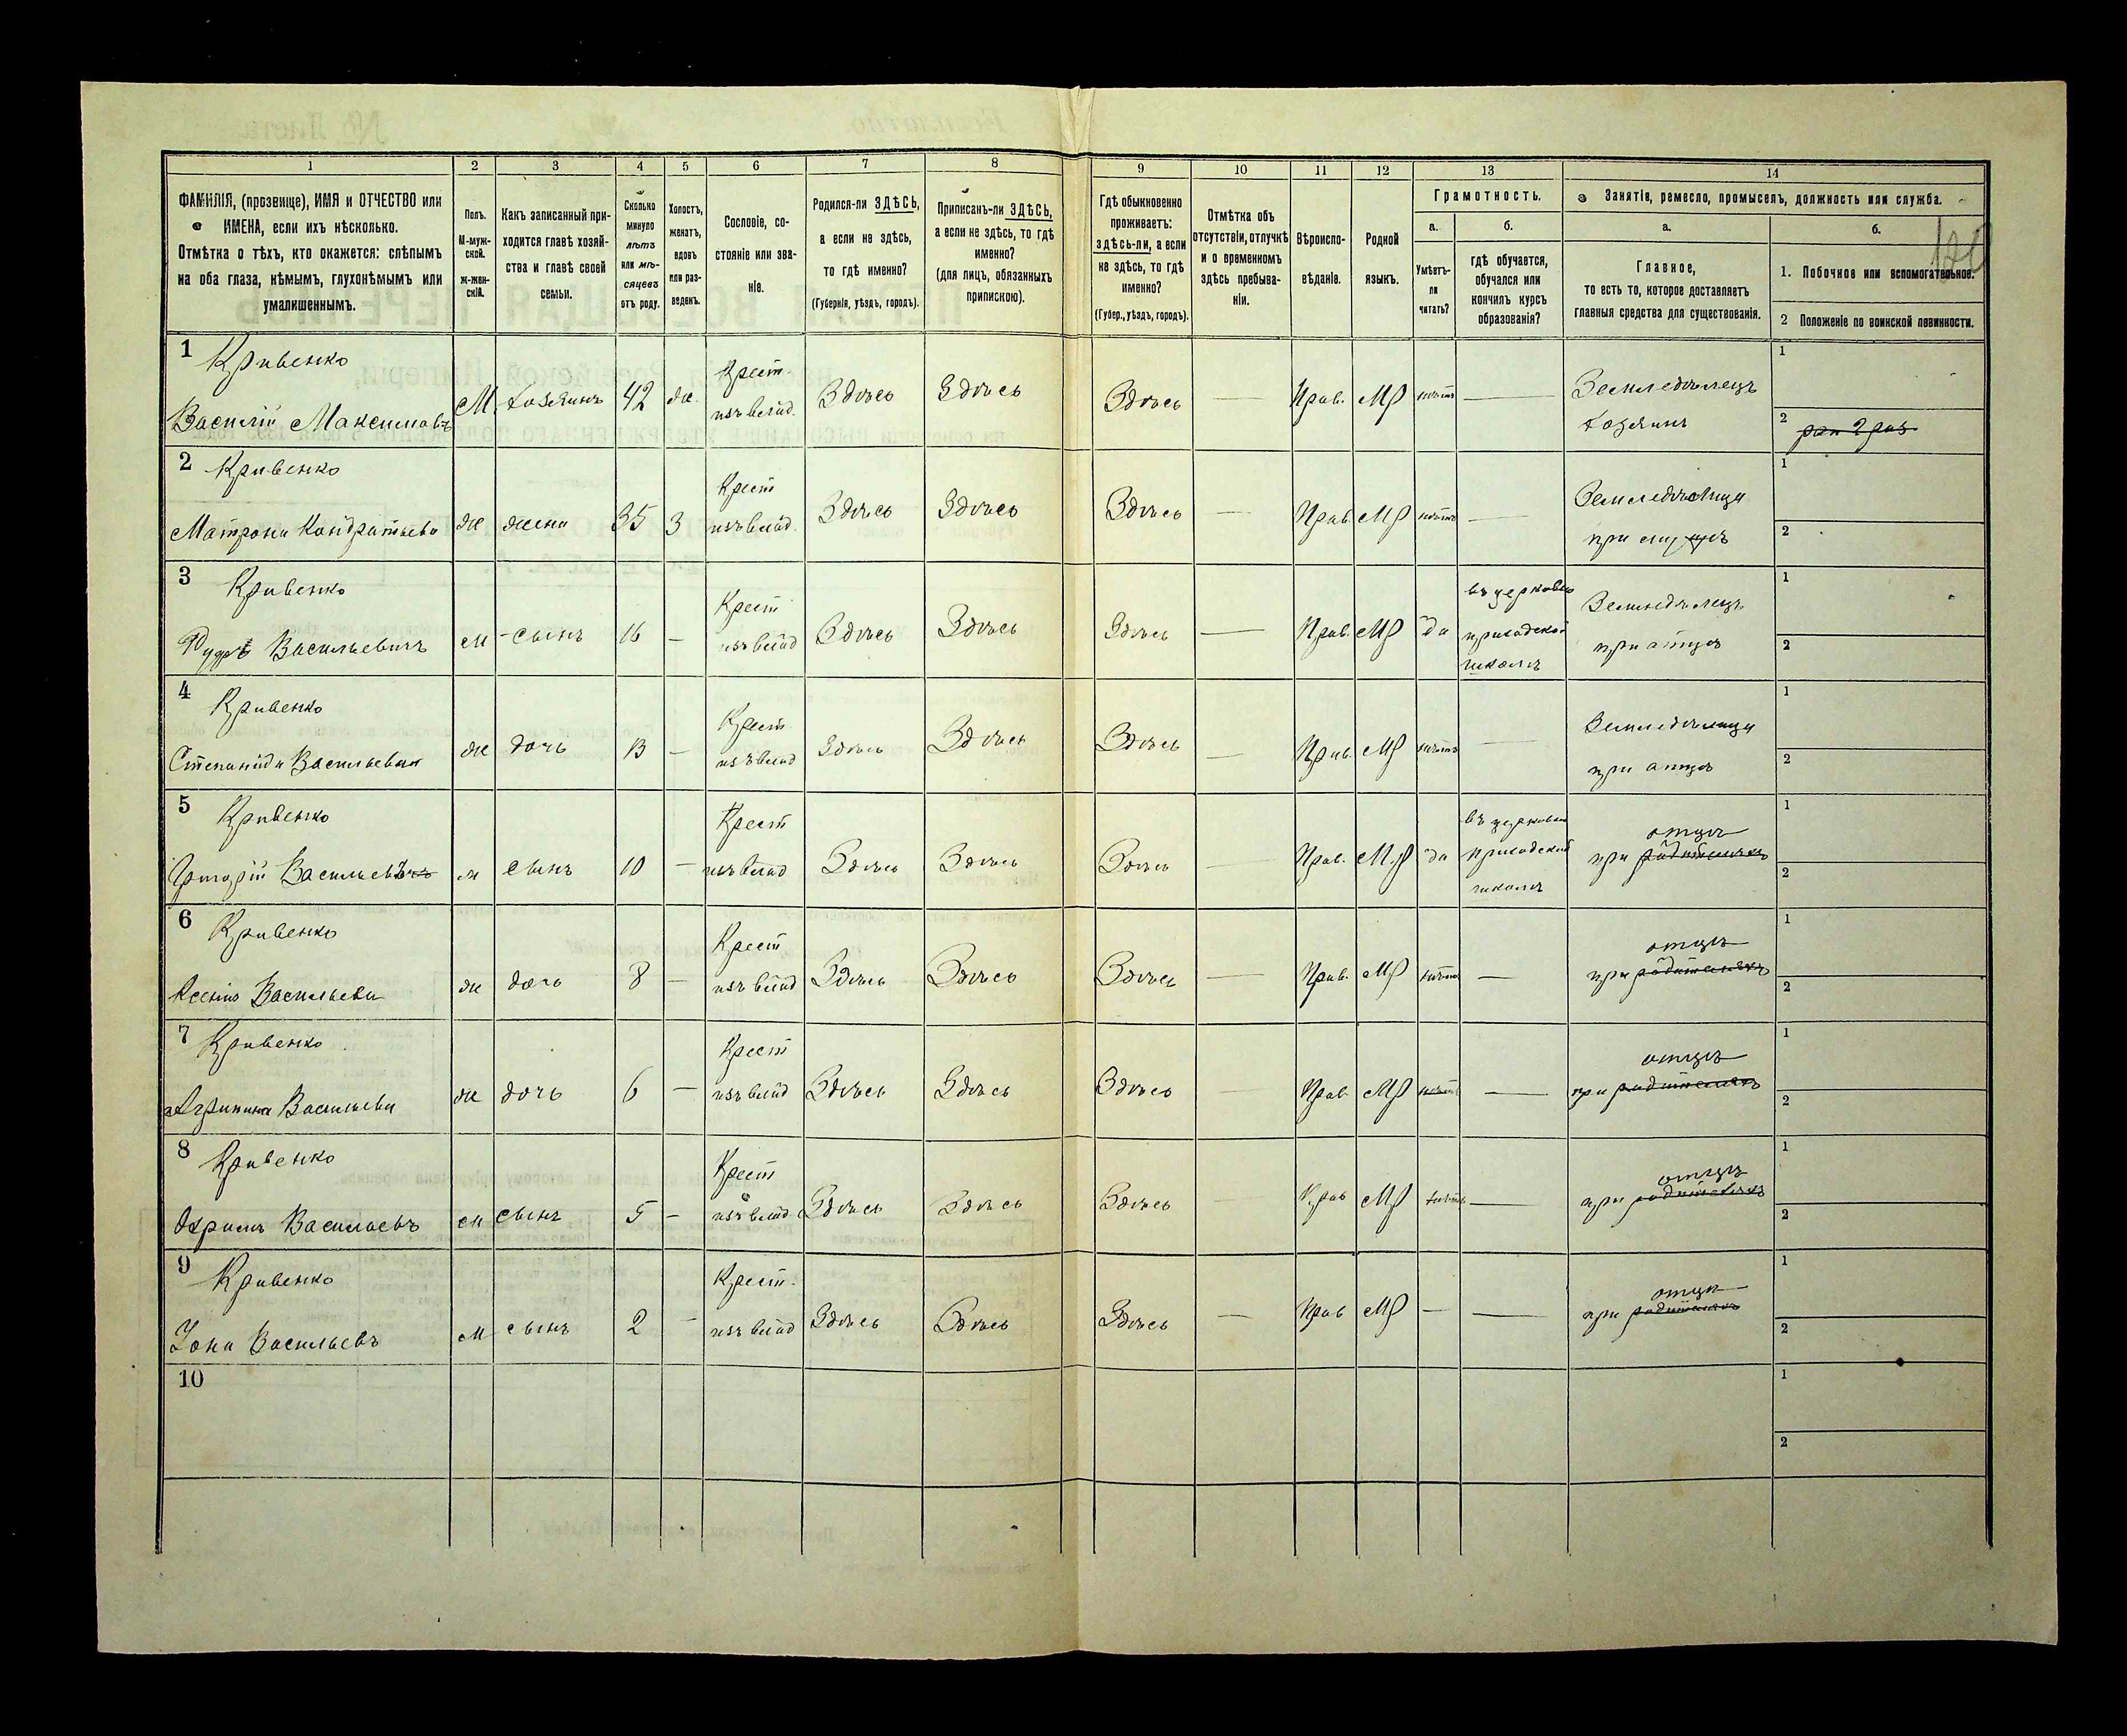 1 2 3 4 5 6 7 8 9 10 11 12 13 14
ФАМИЛІЯ, (прозвище), ИМЯ и ОТЧЕСТВО или
ИМЕНА, если ихъ нѣсколько.
Отмѣтка о тѣхъ, кто окажется: слѣпымъ
на оба глаза, нѣмымъ, глухонѣмымъ или
умалишеннымъ.
Полъ.
М-муж-
ской.
ж-жен-
скій.
Какъ записанный при-
ходится главѣ хозяй-
ства и главѣ своей
семьи.
Сколько
минуло
лѣтъ
или мѣ-
сяцевъ
отъ роду.
Холостъ,
женатъ,
вдовъ
или раз-
веденъ.
Сословіе, со-
стояніе или зва-
ніе.
Родился-ли ЗДѢСЬ,
а если не здѣсь,
то гдѣ именно?
(Губернія, уѣздъ, городъ).
Приписанъ-ли ЗДѢСЬ,
а если не здѣсь, то гдѣ
именно?
(для лицъ, обязанныхъ
припискою).
Гдѣ обыкновенно
проживаетъ:
здѣсь-ли, а если
не здѣсь, то гдѣ
именно?
(Губер., уѣздъ, городъ).
Отмѣтка объ
отсутствіи, отлучкѣ
и о временномъ
здѣсь пребыва-
ніи.
Вѣроиспо-
вѣданіе.
Родной
языкъ.
Грамотность.
а.
Умѣетъ-
ли
читать?
б.
гдѣ обучается,
обучался или
кончилъ курсъ
образованія?
Занятіе, ремесло, промыселъ, должность или служба.
а.
Главное,
то есть то, которое доставляетъ
главныя средства для существованія.
б.
1. Побочное или вспомогательное.
2 Положеніе по воинской повинности.
1 Кривенко Крест. Земледѣлецъ 1
Василій Максимовъ М хозяинъ 42 ж. изъ влад. Здѣсь Здѣсь Здѣсь — Прав. МР нѣтъ — хозяинъ 2
2 Кривенко Крест Земледѣлица 1
Матрона Кондратьева ж жена 35 З изъ влад. Здѣсь Здѣсь Здѣсь — Прав. МР нѣтъ — при 2
3 Кривенко Крест въ церковно Земледѣлецъ 1
Васильевичъ м сынъ 16 — изъ влад Здѣсь Здѣсь Здѣсь — Прав. МР да приходской при отцѣ 2
школѣ
4 Кривенко Крест Земледѣлица 1
Степанида Васильевна ж дочь 13 — изъ влад Здѣсь Здѣсь Здѣсь — Прав. МР нѣтъ — при отцѣ 2
5 Кривенко Крест въ церковно отцѣ 1
Григорій Васильевъ м сынъ 10 — изъ влад Здѣсь Здѣсь Здѣсь — Прав. МР да приходской при родителяхъ 2
школѣ
6 Кривенко Крест отцѣ 1
Ксенія Васильева ж дочь 8 — изъ влад Здѣсь Здѣсь Здѣсь — Прав. МР нѣтъ — при родителяхъ 2
7 Кривенко Крест отцѣ 1
Агрипина Васильева ж дочь 6 — изъ влад Здѣсь Здѣсь Здѣсь — Прав МР нѣтъ — при родителяхъ 2
8 Кривенко Крест отцѣ 1
Васильевъ м сынъ 5 — изъ влад Здѣсь Здѣсь Здѣсь — Прав МР нѣтъ — при родителяхъ 2
9 Кривенко Крест. отцѣ 1
Іона Васильевъ м сынъ 2 — изъ влад Здѣсь Здѣсь Здѣсь — Прав МР — — при родителяхъ 2
10 1
2